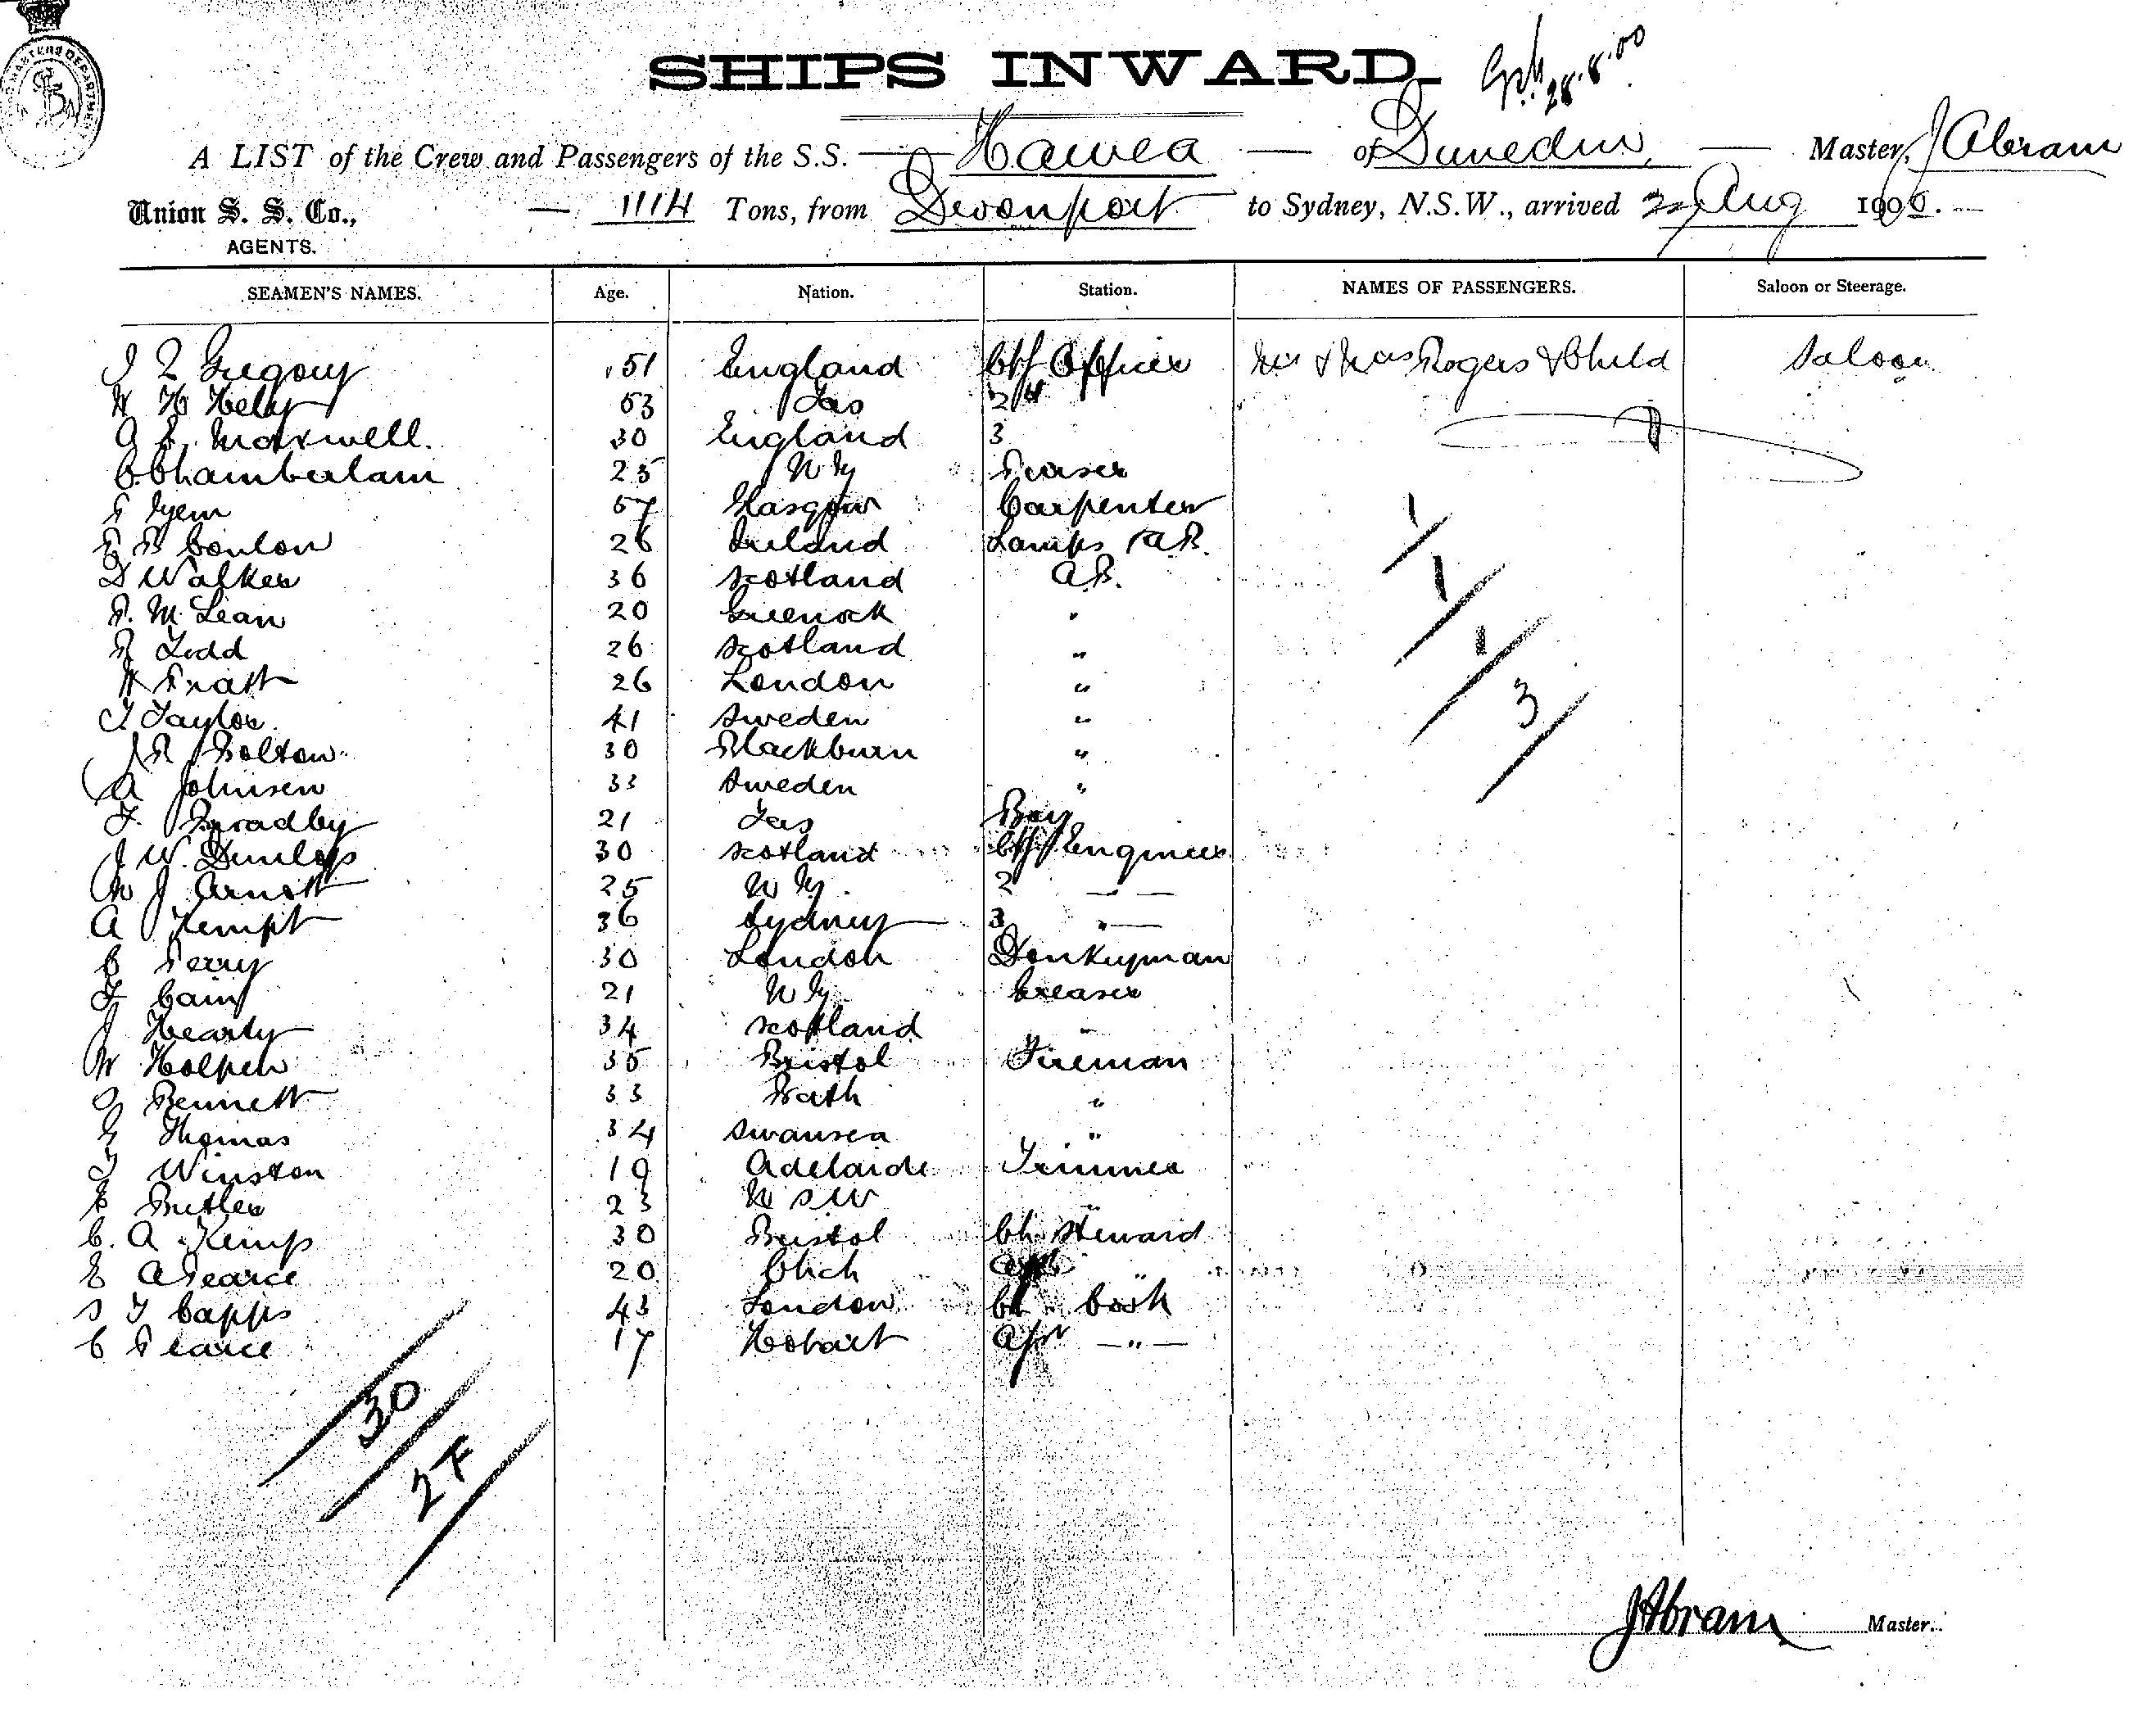 SHIPS INWARD
28.8.00
A LIST of the Crew and Passengers of the S.S. Hawea of Dunedin, Master, J Abram
Union S. S. Co., 1114 Tons, from Devonport to Sydney, N.S.W., arrived 27 Aug 1900.
AGENTS.
SEAMEN'S NAMES. Age. Nation. Station. NAMES OF PASSENGERS. Saloon or Steerage.
Gregory 51 England Chf Officer Mr & Mrs Rogers & Child Saloon
W H Hely 53 Tas 2nd
A E. Maxwell. 30 England 3
C. Chamberlain 25 N Z Purser
Gem 57 Glasgow Carpenter
P B Conlon 26 Ireland Lamps A.B.
D Walker 36 Scotland A.B.
P. McLean 20 Greenock "
R Todd 26 Scotland "
W Pratt 26 London "
T Taylor 41 Sweden "
J R Bolton 30 Blackburn "
A Johnsen 33 Sweden "
F. Bradby 21 Tas Boy
J W. Dunlop 30 Scotland Chf Engineer
W J Arnott 25 N Z. 2 — —
A Kempt 36 Sydney 3 "
C Perry 30 London Donkeyman
F Cain 21 N Z. Greaser
J Hearty 34 Scotland "
W Holpen 35 Bristol Fireman
G Bennett 33 Bath "
G Thomas 34 Swansea "
J Winston 19 Adelaide Trimmer
E Butler 23 N S W "
C. A. Kemp 30 Bristol Ch. Steward
E A Pearce 20 Chch "
S T Capps 43 London Ch Cook
C Pearce 17 Hobart Apr — " —
1
1
1
3
30
27
J Abram Master.